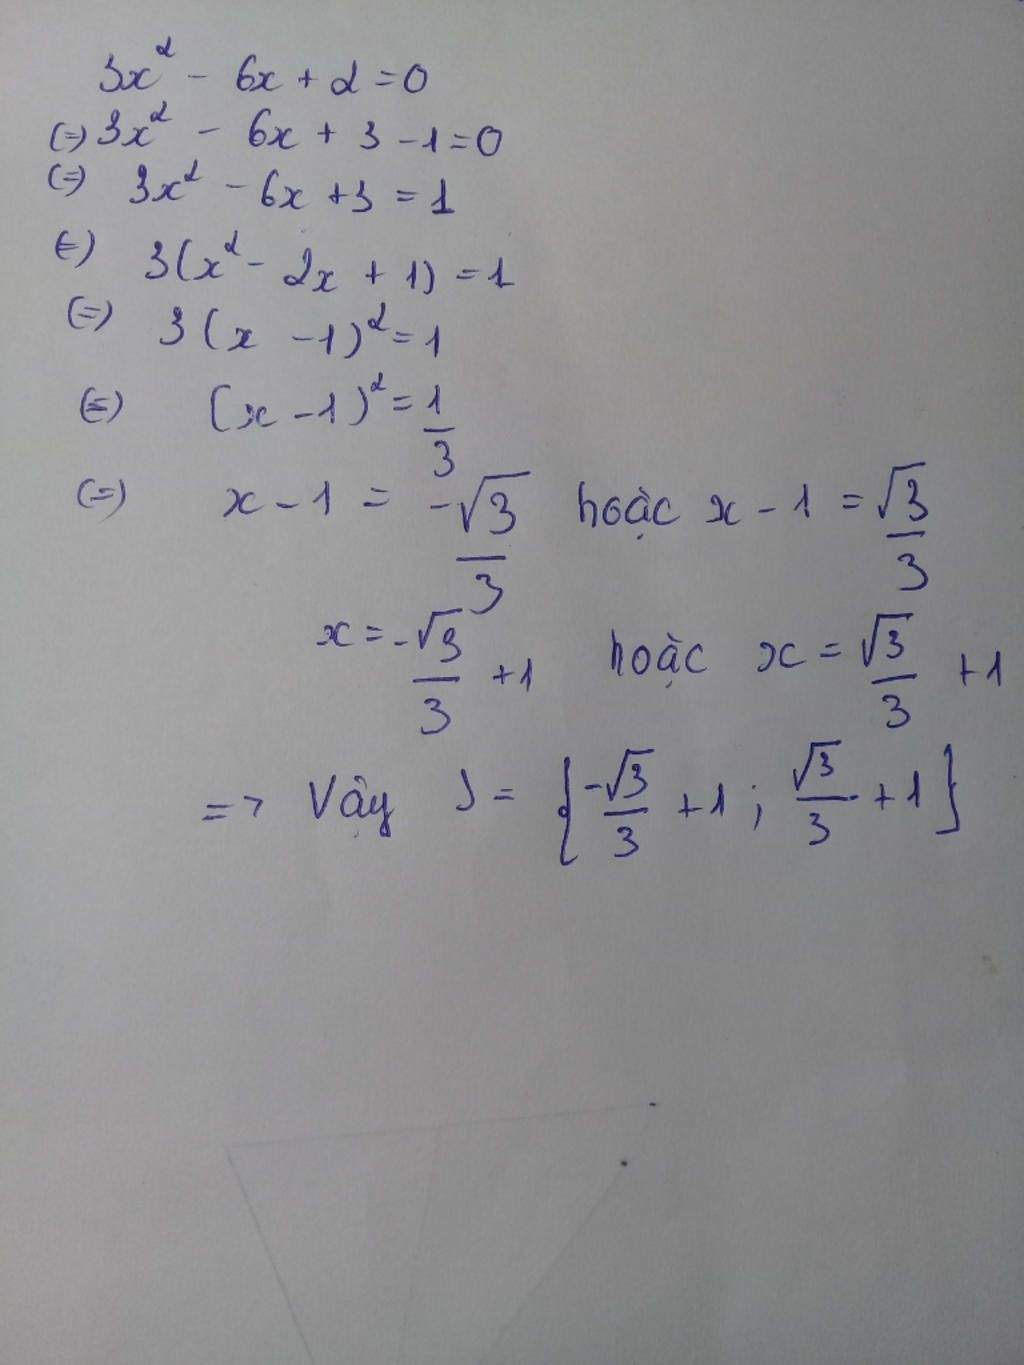 3x² - 6x + 2 = 0
(=) 3x² - 6x + 3 - 1 = 0
(=) 3x² - 6x + 3 = 1
(=) 3(x² - 2x + 1) = 1
(=) 3(x - 1)² = 1
(=) (x - 1)² = 1/3
(=) x - 1 = -√3/3 hoặc x - 1 = √3/3
x = -√3/3 + 1 hoặc x = √3/3 + 1
=> Vậy S = {-√3/3 + 1 ; √3/3 + 1}